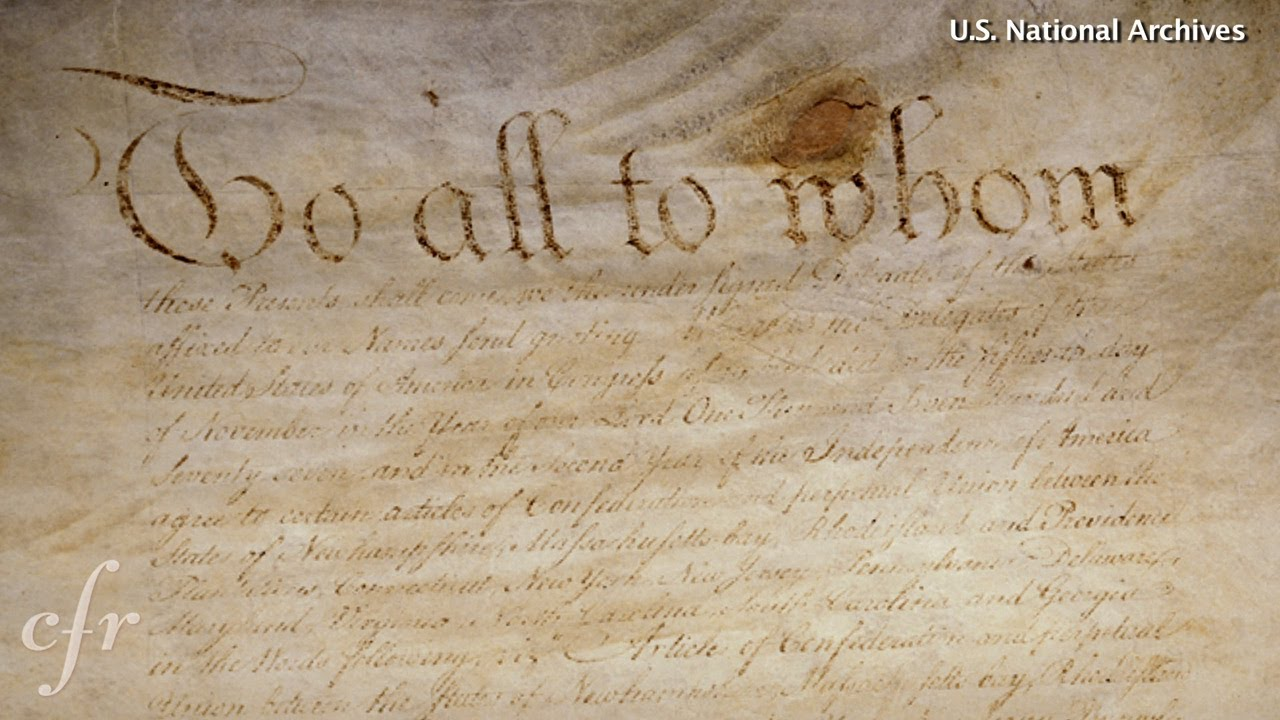 U.S. National Archives
To all to whom
these Presents shall come, we the under signed Delegates of the States
affixed to our Names send greeting the Delegates of the
United States of America in Congress on the fifteenth day
of November in the Year of our Lord One Thousand Seven Hundred and
Seventy seven and in the Second Year of the Independence of America
agree to certain articles of Confederation and perpetual Union between the
States of Newhampshire, Massachusetts-bay, Rhodeisland and Providence
Plantations, Connecticut, New York, New Jersey, Pennsylvania, Delaware,
Maryland, Virginia, North Carolina, South Carolina and Georgia
in the Words following, viz. Articles of Confederation and perpetual
Union between the States of Massachusetts bay, Rhodeisland
cfr